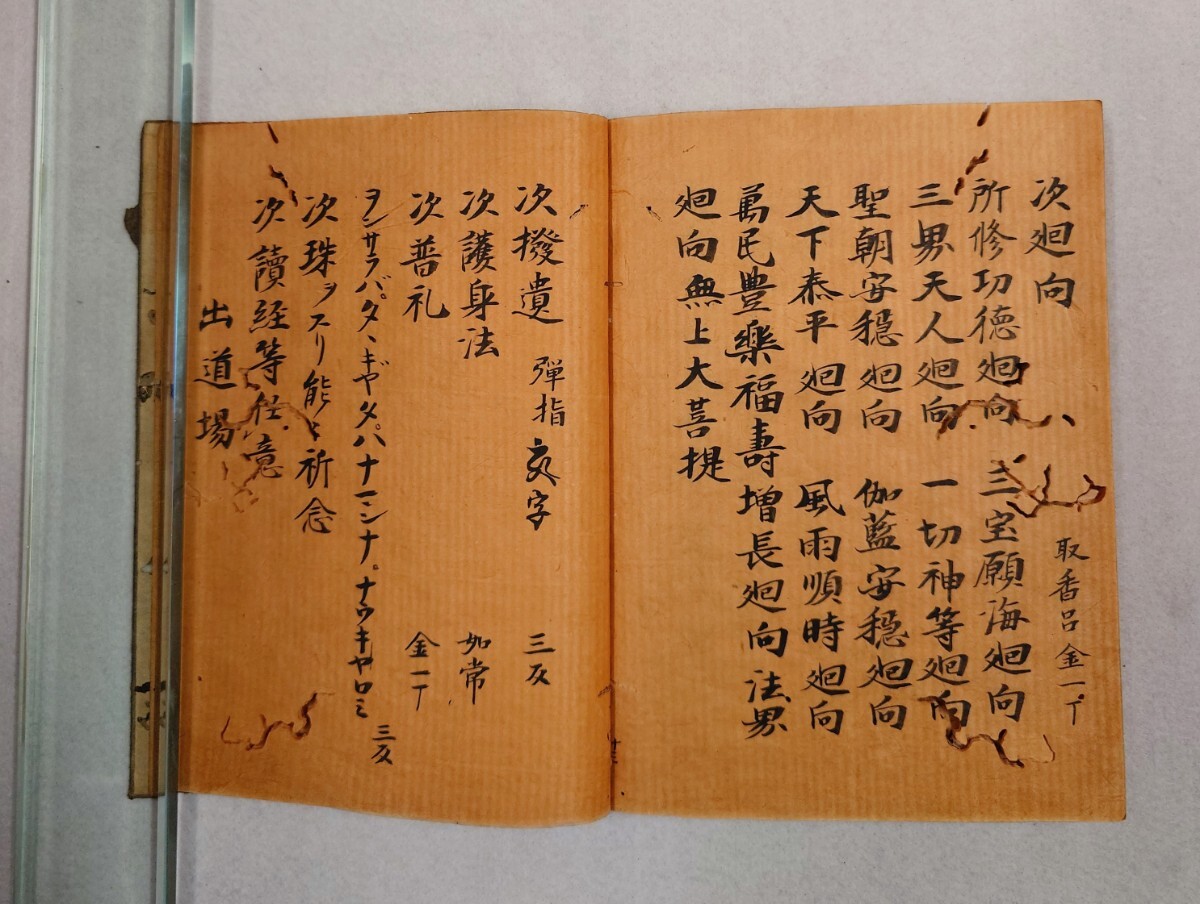 次廻向　取香呂金一丁
所修功徳廻向　三宝願海廻向
三界天人廻向　一切神等廻向
聖朝安穏廻向　伽藍安穏廻向
天下泰平廻向　風雨順時廻向
萬民豊楽福壽増長廻向法界
廻向無上大菩提
次撥遺　弾指　字　三反
次護身法　如常
次普礼　金一丁
ヲンサラバタヽギャタハナマンナナウキャロミ　三反
次珠ヲスリ能〻祈念
次讀経等任意
出道場